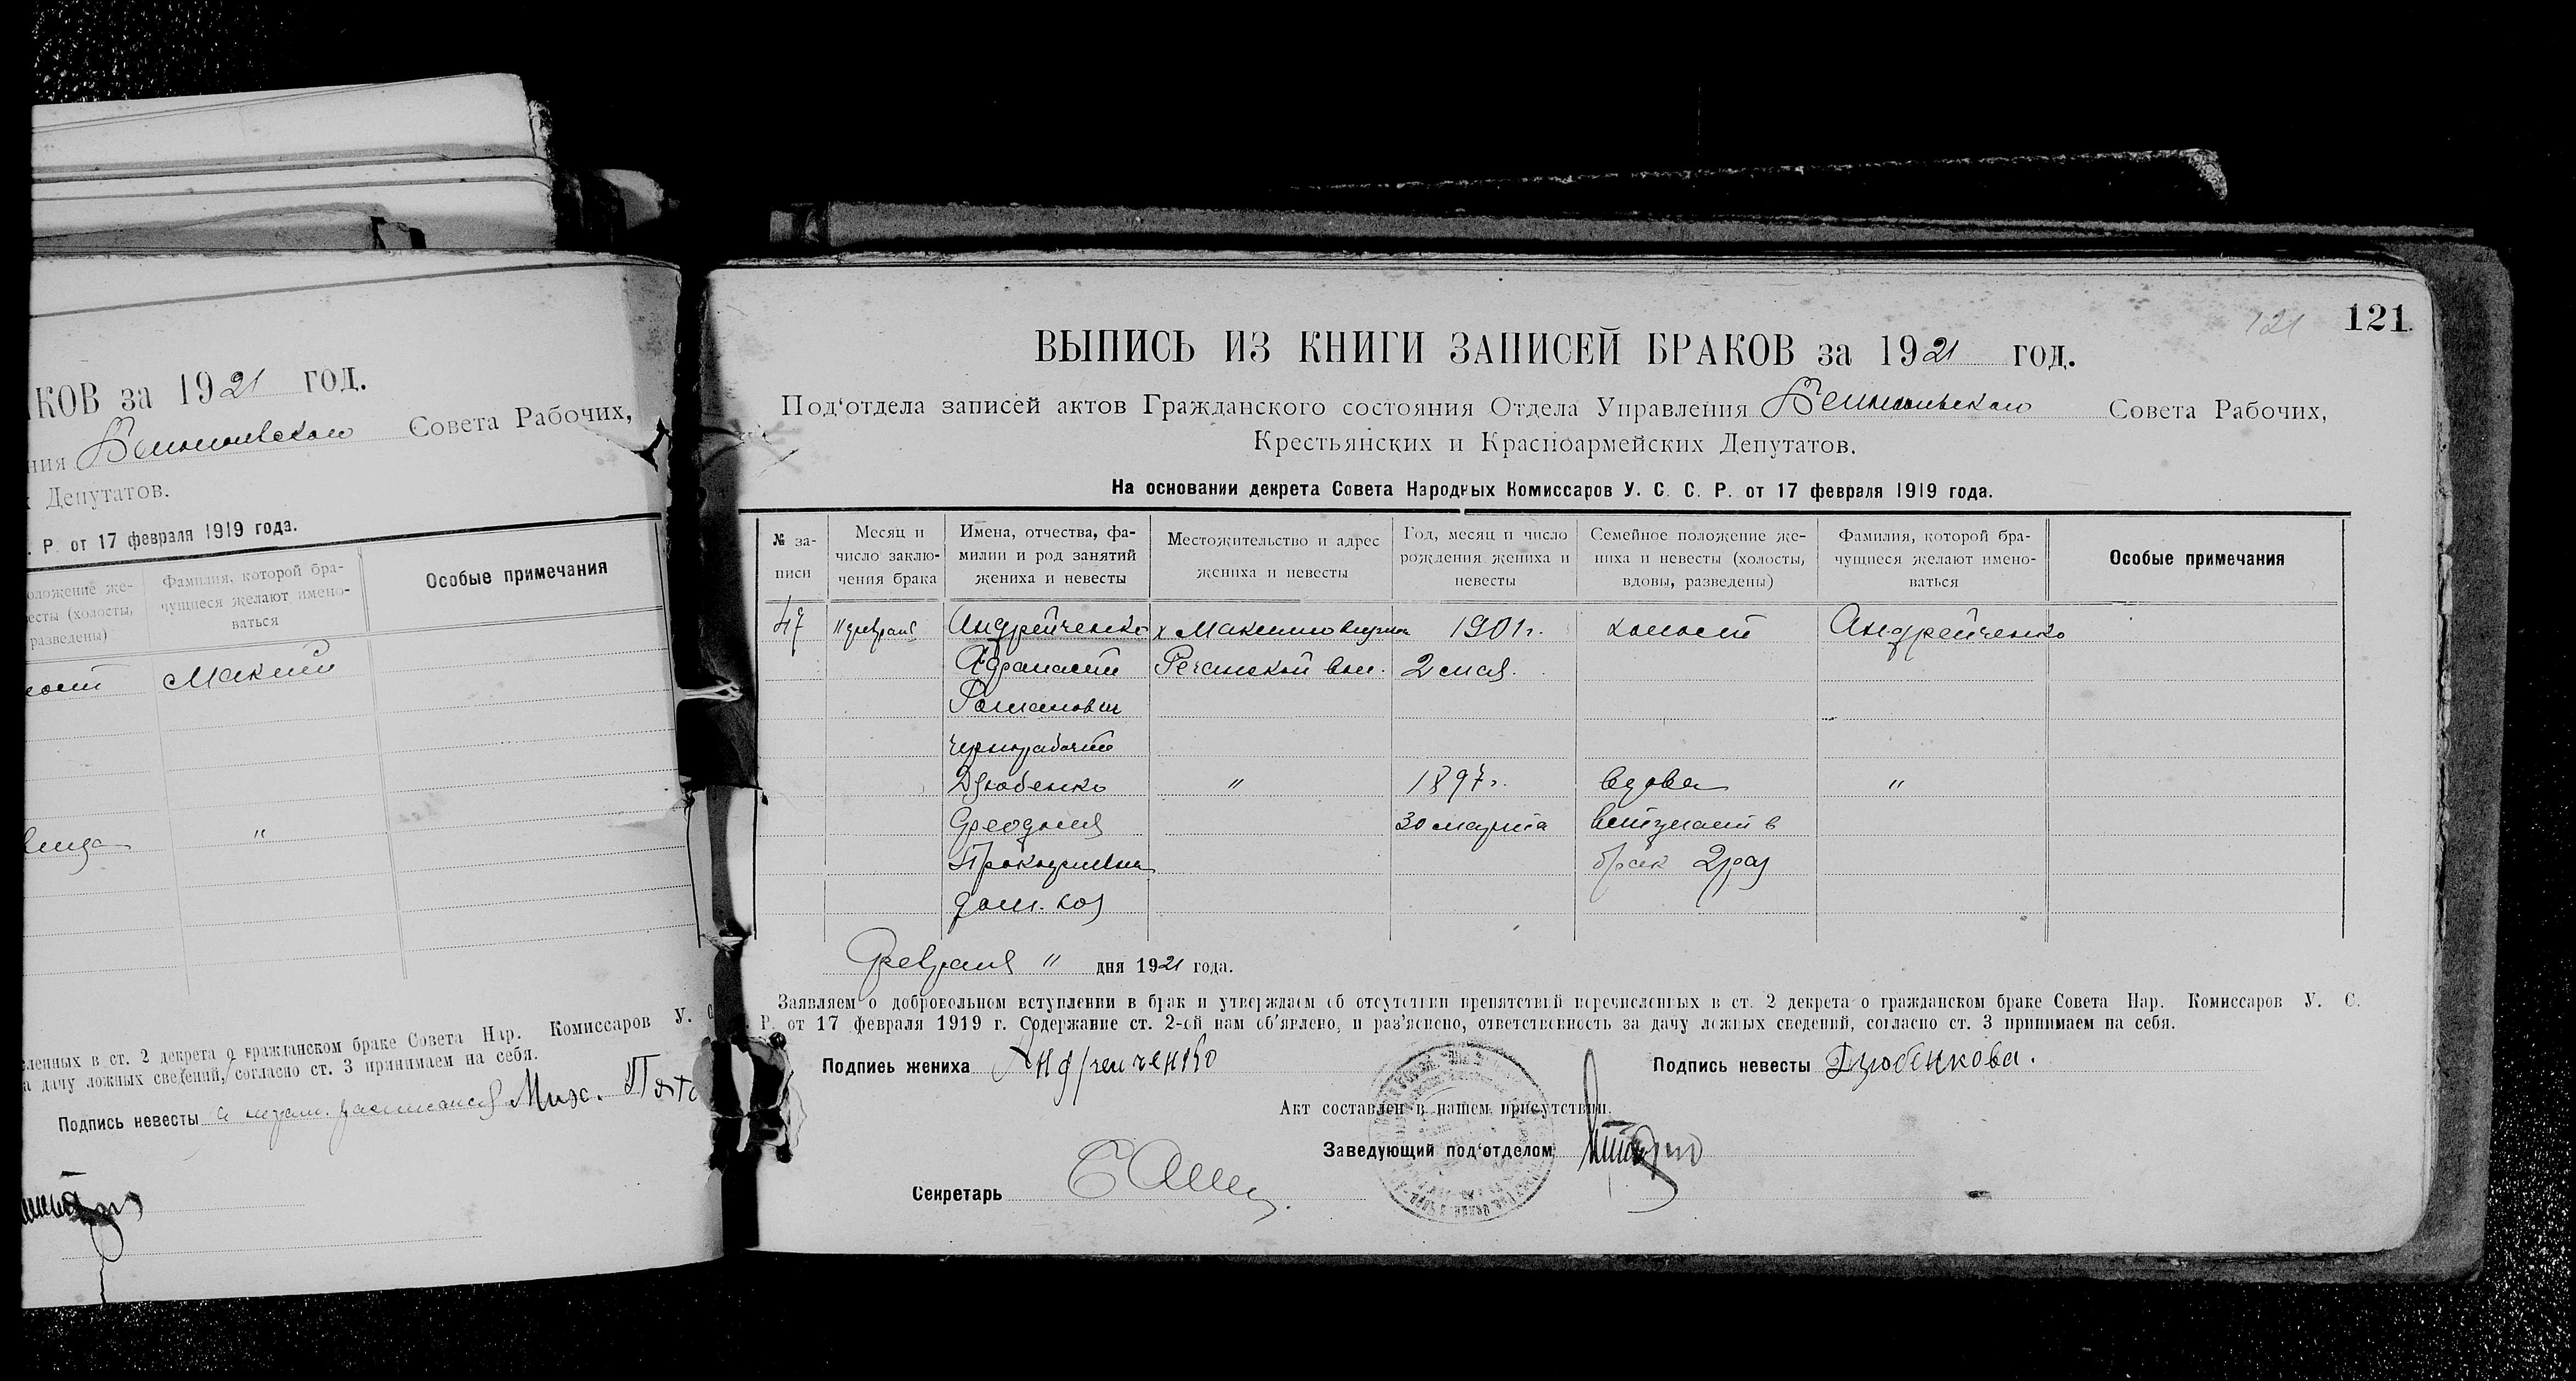 КОВ за 1921 год.
ния Совета Рабочих,
Депутатов.
Р. от 17 февраля 1919 года.
Фамилия, которой бра-
чущиеся желают имено-
ваться
Особые примечания
Макий
"
сленных в ст. 2 декрета о гражданском браке Совета Нар. Комиссаров У. С.
а дачу ложных сведений, согласно ст. 3 принимаем на себя.
Подпись невесты
121
121.
ВЫПИСЬ ИЗ КНИГИ ЗАПИСЕЙ БРАКОВ за 1921 год.
Под‘отдела записей актов Гражданского состояния Отдела Управления Совета Рабочих,
Крестьянских и Красноармейских Депутатов.
На основании декрета Совета Народных Комиссаров У. С. С. Р. от 17 февраля 1919 года.
№ за-
писи
Месяц и
число заклю-
чения брака
Имена, отчества, фа-
милии и род занятий
жениха и невесты
Местожительство и адрес
жениха и невесты
Год, месяц и число
рождения жениха и
невесты
Семейное положение же-
ниха и невесты (холосты,
вдовы, разведены)
Фамилия, которой бра-
чущиеся желают имено-
ваться
Особые примечания
47 11 февраля Андрейченко 1901 г. холост Андрейченко
Афанасий вол. 2 мая.
Романович
чернорабочий
Дзюбенко " 1897 г. вдова "
Феодосия 30 марта вступает в
Прокофиевна брак 2 раз
дом. хоз
Февраля 11 дня 1921 года.
Заявляем о добровольном вступлении в брак и утверждаем об отсутствии препятствий перечисленных в ст. 2 декрета о гражданском браке Совета Нар. Комиссаров У. С.
Р. от 17 февраля 1919 г. Содержание ст. 2-ой нам об'явлено, и раз'яснено, ответственность за дачу ложных сведений, согласно ст. 3 принимаем на себя.
Подпись жениха Андрейченко Подпись невесты Дзюбенкова.
Акт составлен в нашем присутствии.
Заведующий под‘отделом
Секретарь